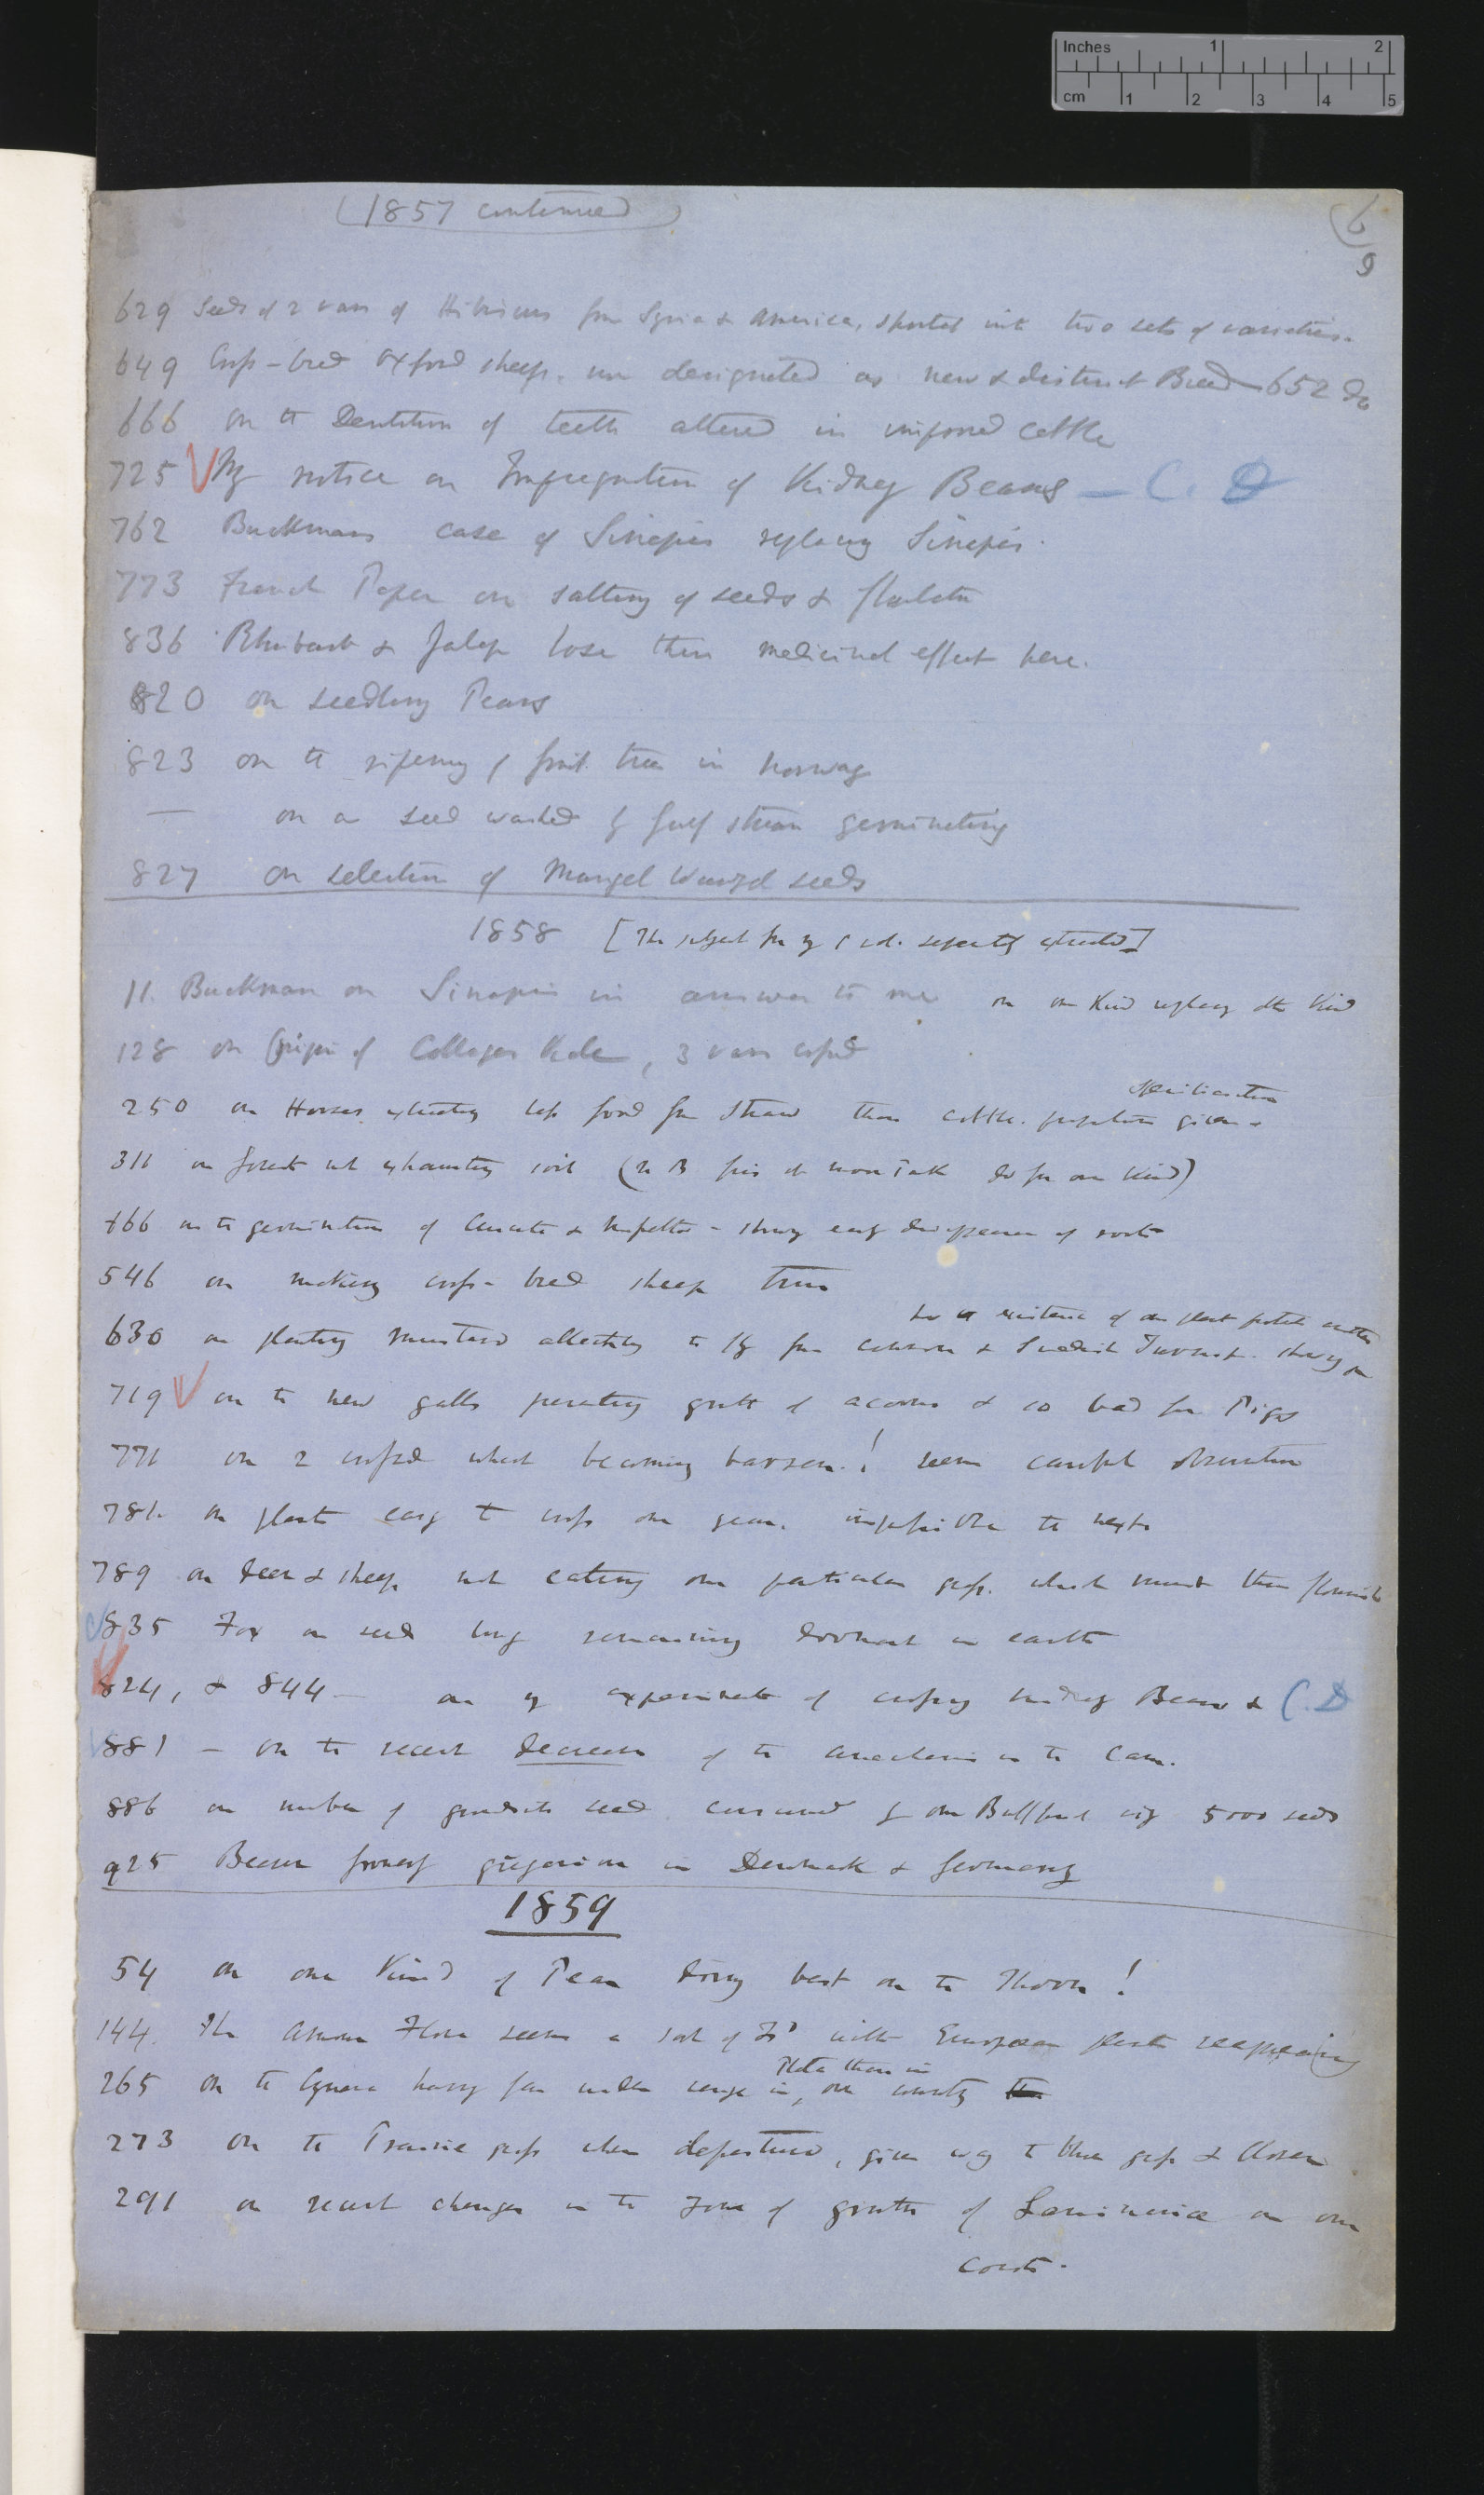 Inches 1 2
cm 1 2 3 4 5
(1857 continued)
6
9
629 Seeds of 2 vars of Hibiscus from Syria & America, sported into two sets of varieties.
649 Cross-bred Oxford sheep, now designated as new & distinct Breed — 652 do
666 on the Dentition of teeth altered in improved cattle
725 My notice on Impregnation of Kidney Beans — C. D
762 Buckmans case of Sinapis replacing Sinapis.
773 French Paper on salting of seeds & floatation
836 Rhubarb & Jalap lose their medicinal effect here.
820 on seedling Pears
823 on the ripening of fruit tree in Norway
— on a seed washed by Gulf stream germinating
827 on selection of Mangel Wurzel seeds
1858 [The subject for my vol. separately extracted]
11. Buckman on Sinapis in answer to me on one Kind replacing other Kind
128 on Origin of Cottagers Kale, 3 vars crossed
250 on Horses extracting less food from straw than cattle. given.
specialisation
311 on forest not exhausting soil (N B do for one Kind)
466 on the germination of & — showing early disappearance of roots
546 on making cross-bred sheep true
so existence of one plant protects another
630 on planting mustard to fly from & Swedish Turnips. showing
719 on the new galls preventing growth of acorns & so bad for Pigs
771 on 2 crossed wheat becoming barren! seem careful observation
781 on plants easy to cross one year. impossible the next
789 on Deer & sheep not eating one particular grass. which must then flourish
835 Fox on seed long remaining dormant in earth
824, & 844 — on my experiments of crossing Kidney Beans & C. D
881 — on the recent decrease of the anacharis in the Cam.
886 on number of seed consumed by one Bullfinch viz 5000 seeds
925 Beech formerly in Denmark & Germany
1859
54 on one Kind of Pear doing best on the Thorn!
144. The Flora seems a sort of with European plants reappearing
Plata than in
265 on the Cynara having far wider range in, own country
273 on the Prairie grass when depastured, gives way to blue grass & Clover
291 on recent changes in the zone of growth of Laminaria on our
coasts.